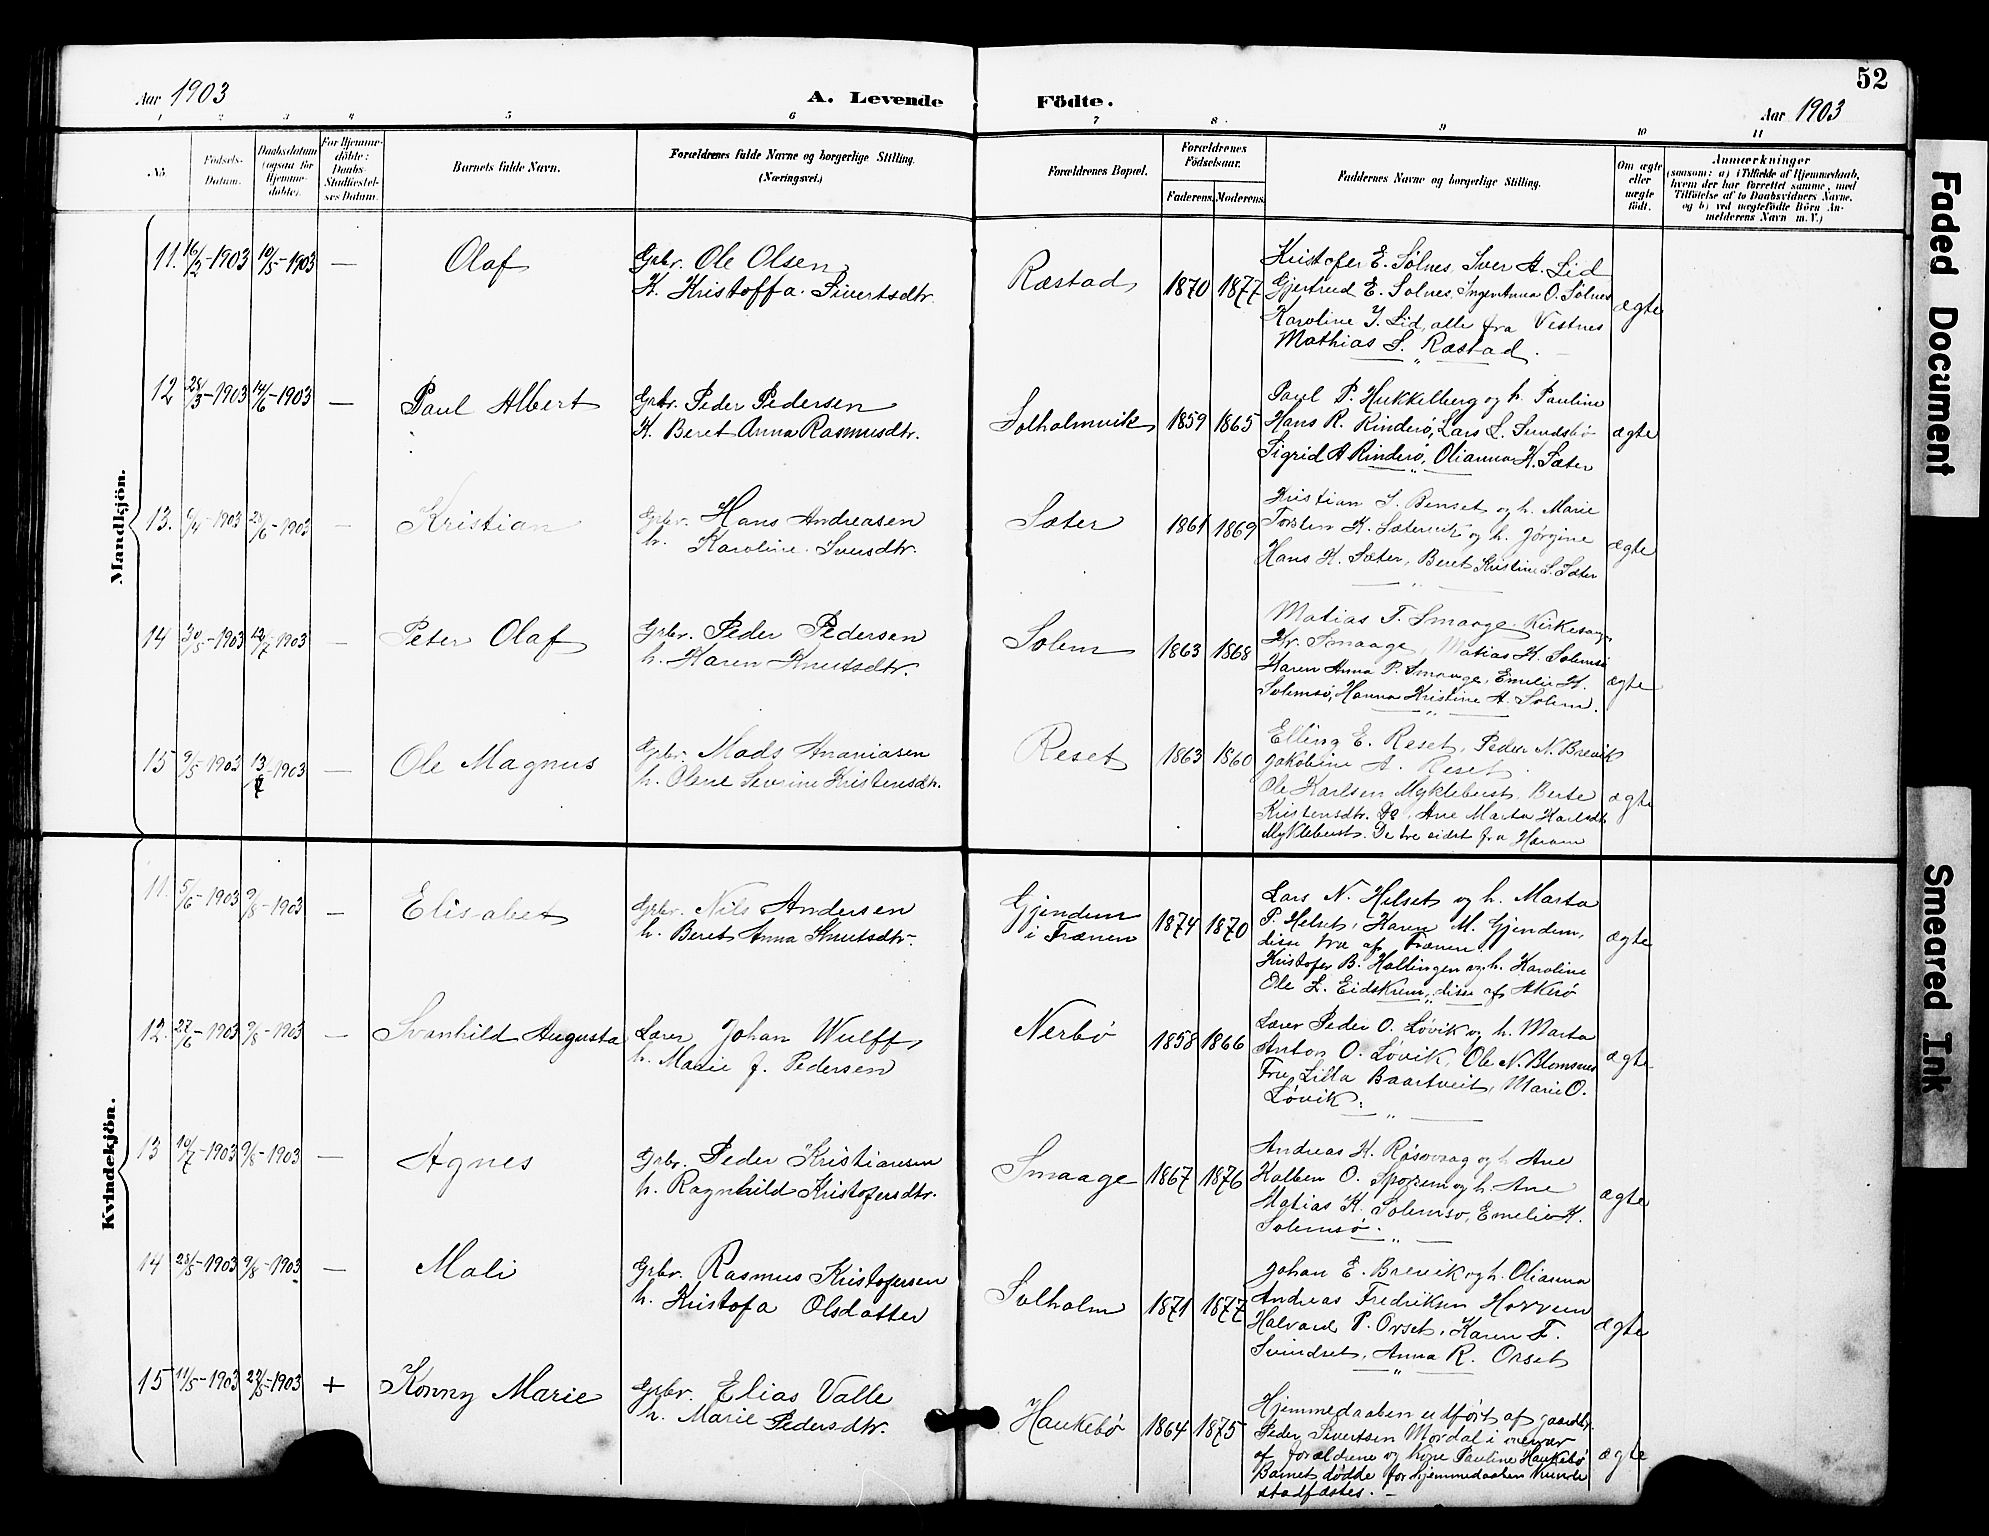 52
Aar 1903
A. Levende Födte.
Aar 1903
1 2 3 4 5 6 7 8 9 10 11
No.
Födsels-
Datum.
Daabsdatum
(ogsaa for
Hjemme-
döbte).
For Hjemme-
döbte:
Daabs-
Stadfæstel-
ses Datum.
Barnets fulde Navn.
Forældrenes fulde Navne og borgerlige Stilling.
(Næringsvei.)
Forældrenes Bopæl.
Forældrenes
Födselsaar.
Faderens. Moderens.
Faddernes Navne og borgerlige Stilling.
Om ægte
eller
uægte
födt.
Anmærkninger
(saasom: a) i Tilfælde af Hjemmedaab,
hvem der har forrettet samme, med
Tilföielse af to Daabsvidners Navne,
og b) ved uægtefödte Börn An-
melderens Navn m. V.)
Mandkjön.
11. 16/2-1903 10/5-1903 — Olaf
Grbr. Ole Olsen
H. Kristoffa Sivertsdtr.
Ræstad 1870 1877
Kristofer E. Solnes, Iver A. Lid
Gjertrud E. Solnes, Inger Anna O. Solnes
Karoline I. Lid, alle fra Vestnes
Mathias S. Ræstad.
ægte
12 28/3-1903 14/6-1903 — Paul Albert
Grbr. Peder Pedersen
H. Beret Anna Rasmusdtr.
Solholmvik 1859 1865
Paul P. Hukkelberg og h. Pauline
Hans R. Rinderø, Lars L. Sundsbø
Sigrid A Rinderø, Olianna H. Sæter
ægte
13. 9/4-1903 28/6-1903 — Kristian
Grbr. Hans Andreasen
h. Karoline Iversdtr.
Sæter 1861 1869
Kristian S. Benset og h. Marie
Torsten K. Sætervik og h. Jørgine
Hans H. Sæter, Beret Kristine S. Sæter
ægte
14 30/5-1903 12/7-1903 — Peter Olaf
Grbr. Peder Pedersen
h. Karen Knutsdtr.
Solem 1863 1868
Matias T. Smaage, Kirkesanger
Kr. Smaage, Matias K. Solemsø
Karen Anna P. Smaage, Emelie K.
Solemsø, Hanna Kristine A. Solem.
ægte
15 9/5-1903 13/7-1903 — Ole Magnus
Grbr. Mads Ananiasen
h. Olene Severine Kristensdtr.
Reset 1863 1860
Elling E. Reset, Peder N. Brevik
Jakobine A. Reset.
Ole Karlsen Myklebust, Berte
Kristensdtr. Do, Ane Marta Karlsdtr
Myklebust. De tre sidst fra Haram
ægte
Kvindekjön.
11. 5/6-1903 9/8-1903 — Elisabet
Grbr. Nils Andersen
h. Beret Anna Knutsdtr.
Gjendem
i Frænen 1874 1870
Lars N. Helset og h. Marta
P. Helset, Karen M. Gjendem,
disse tre af Frænen.
Kristofer B. Hallingen og h. Karoline
Ole L. Eidskrem, disse af Akerø
ægte
12. 27/6-1903 9/8-1903 — Svanhild Augusta
Lærer Johan Wulff,
h. Marie J. Pedersen
Nerbø 1858 1866
Lærer Peder O. Løvik og h. Marta
Anton O. Løvik, Ole N. Blomsnes
Fru Lilla Baartveit, Marie O.
Løvik.
ægte
13 10/7-1903 9/8-1903 — Agnes
Grbr. Peder Kristiansen
h. Ragnhild Kristofersdtr.
Smaage 1867 1876
Andreas K. Røsovaag og h. Ane
Kolben O. Sporsem og h. Ane
Matias K. Solemsø, Emelie K.
Solemsø.
ægte
14 28/5-1903 9/8-1903 — Mali
Grbr. Rasmus Kristofersen
h. Kristofa Olsdatter
Solholm 1871 1877
Johan E. Brevik og h. Olianna
Andreas Fredriksen Horrem
Halvard P. Orset, Karen F.
Svindset, Anna R. Orset
ægte
15 11/5-1903 27/5-1903 + Konny Marie
Grbr. Elias Valle
h. Marie Pedersdtr.
Haukebø 1864 1875
Hjemmedaaben udført af gaardbr.
Peder Sivertsen Mordal i nærvær
af forældrene og Kone Pauline Haukebø
Barnet døde før hjemmedaaben kunde
stadfæstes. —
ægte
Faded Document
Smeared Ink